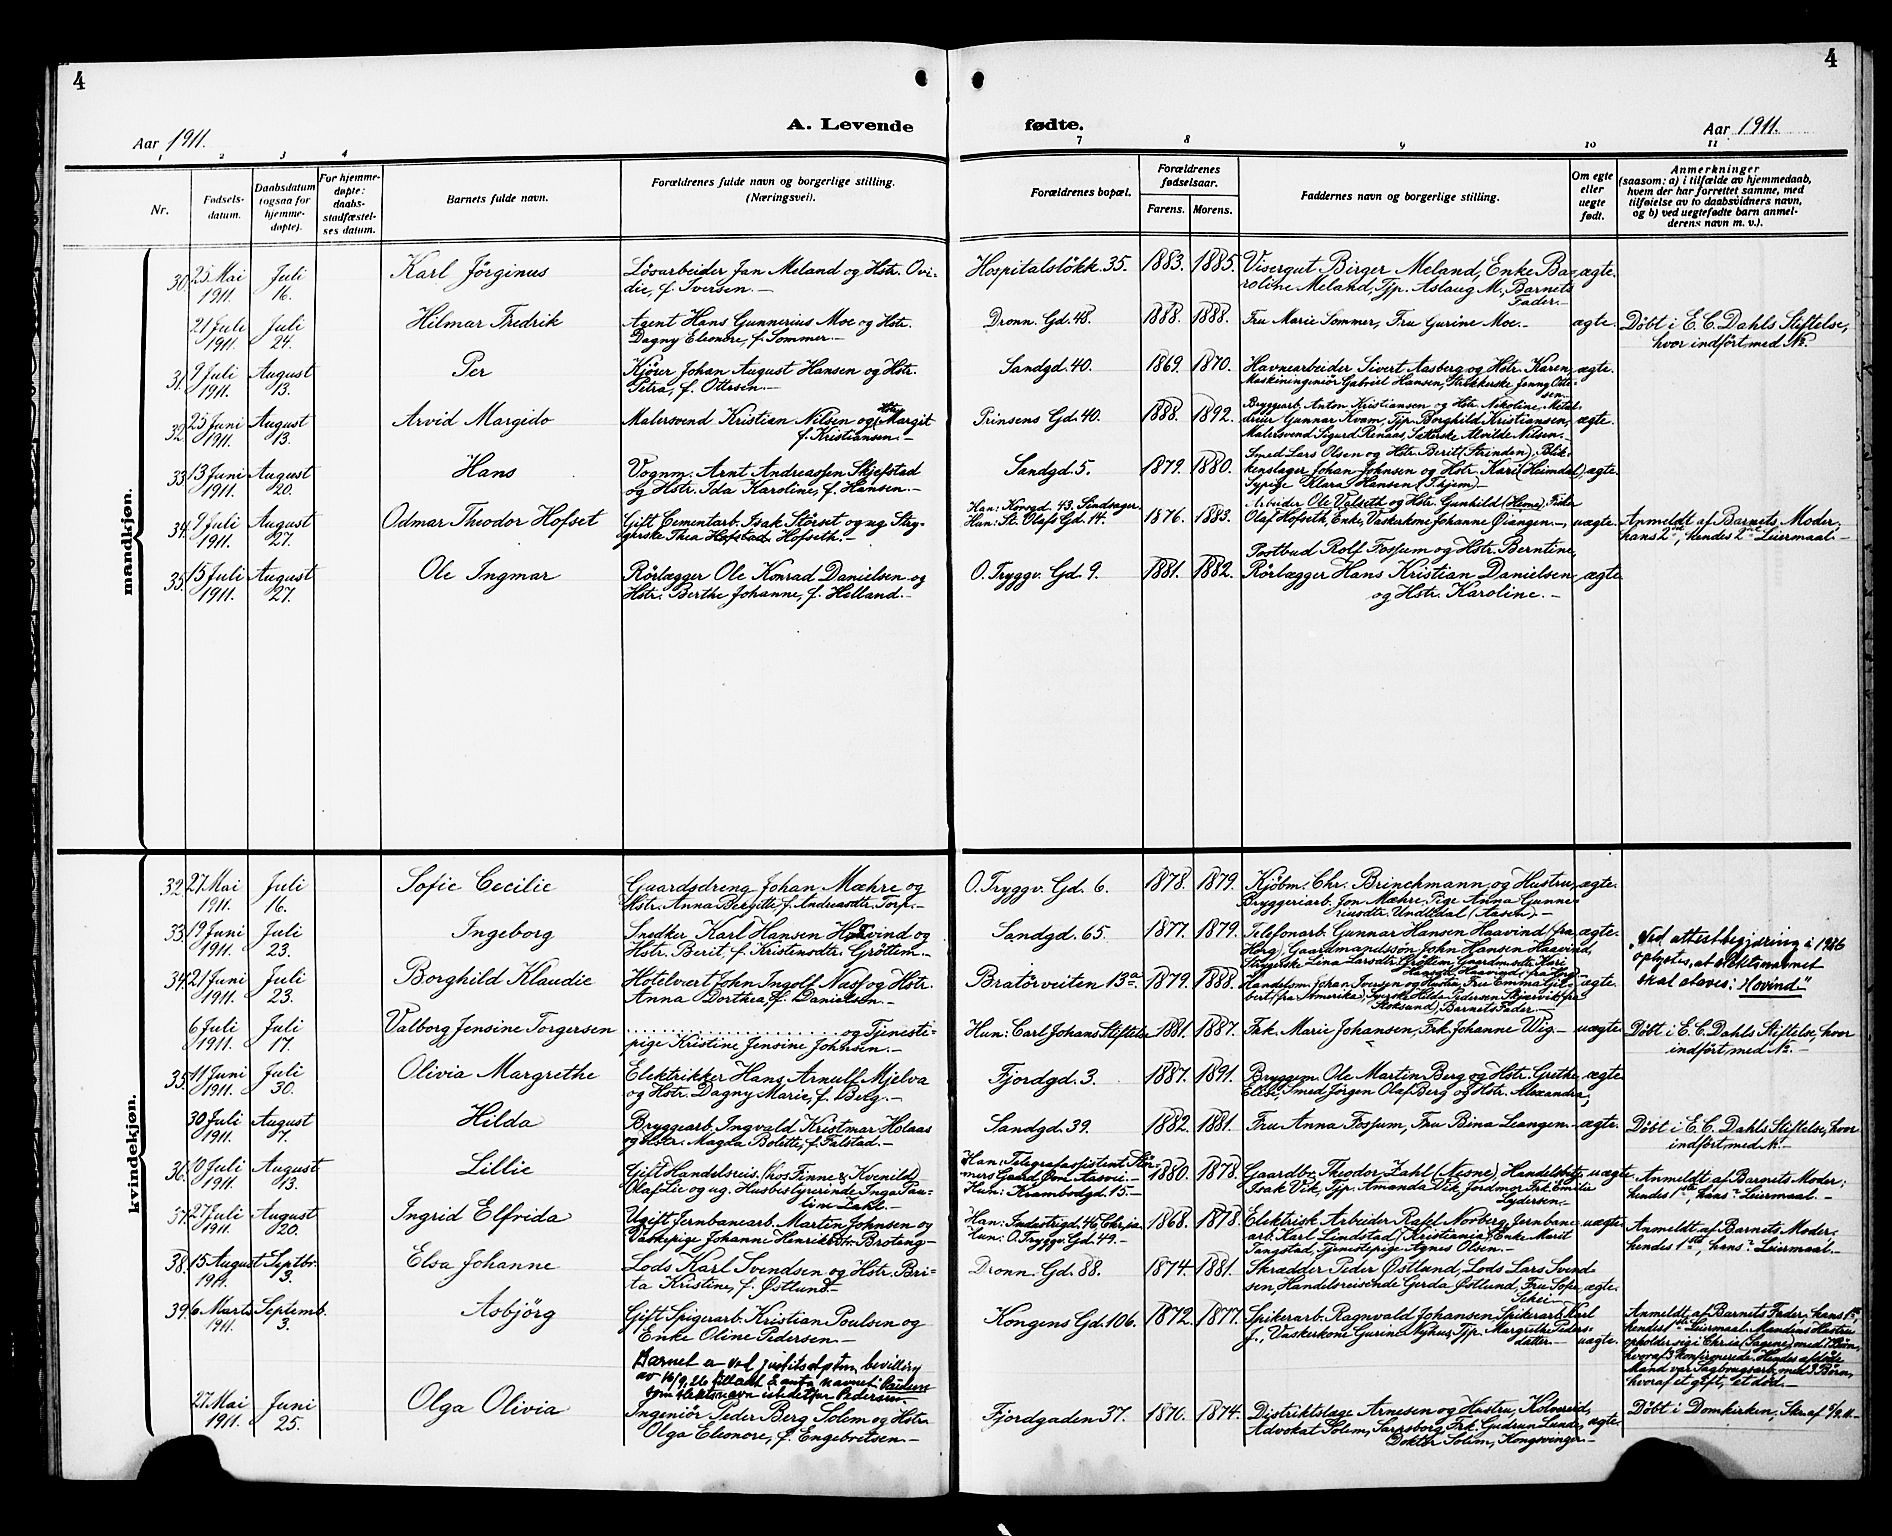 4
4
A. Levende fødte.
Aar 1911.
Aar 1911.
1 2 3 4 7 8 9 10 11
Nr.
Fødsels-
datum.
Daabsdatum
(ogsaa for
hjemme-
døpte).
For hjemme-
døpte:
daabs-
stadfæstel-
ses datum.
Barnets fulde navn.
Forældrenes fulde navn og borgerlige stilling.
(Næringsvei).
Forældrenes bopæl.
Forældrenes
fødselsaar.
Farens. Morens.
Faddernes navn og borgerlige stilling.
Om egte
eller
uegte
født.
Anmerkninger
(saasom: a) i tilfælde av hjemmedaab,
hvem der har forrettet samme, med
tilføielse av to daabsvidners navn,
og b) ved uegtefødte barn anmel-
derens navn m. v.).
mandkjøn.
30. 25 Mai 1911. Juli 16. Karl Jörginus
Lösarbeider Jan Meland og Hstr. Ovi-
die, f. Iversen.—
Hospitalslökk. 35. 1883. 1885.
Visergut Birger Meland, Enke Ba-
roline Meland, Tjp. Aslaug M., Barnets
Fader.—
ægte.
21 Juli 1911. Juli 24. Hilmar Fredrik
Agent Hans Gunnerius Moe og Hstr.
Dagny Eleonore, f. Sommer.—
Dronn. Gd. 48. 1888. 1888.
Fru Marie Sommer, Fru Gurine Moe.—
ægte.
Döbt i E. C. Dahls Stiftelse,
hvor indfört med No.
31. 9 Juli 1911. August 13. Per
Kjörer Johan August Hansen og Hstr.
Petra, f. Ottesen.—
Sandgd. 40. 1869. 1870.
Havnearbeider Sivert Aasberg og Hstr. Karen,
Maskiningeniör Gabriel Hansen, Strikkerske Jenny Otte-
sen.
ægte.
32. 25 Juni 1911. August 13. Arvid Margido
Malersvend Kristian Nilsen og Hstr. Margit
f. Kristiansen.—
Prinsens Gd. 40. 1888. 1892.
Bryggearb. Anton Kristiansen og Hstr. Nekoline, Metal-
dreier Gunnar Kvam, Tjp. Borghild Kristiansen,
Malersvend Sigurd Renaas, Sakerske Alvilde Nilsen.—
ægte.
33. 13 Juni 1911. August 20. Hans
Vognm. Arnt Andreassen Skjefstad
og Hstr. Ida Karoline, f. Hansen.—
Sandgd. 5. 1879. 1880.
Smed Lars Olsen og Hstr. Berit (Strinden), Blik-
kenslager Johan Johnsen og Hstr. Kari (Heimdal),
Sypige Klara Hansen (Thjem).—
ægte.
34. 9 Juli 1911. August 27. Odmar Theodor Hofset
Gift Cementarb. Isak Störset og ug. Stry-
gerske Thea Hofstad Hofseth.—
Han: Kovgd. 43, Sundsager.
Hun: St. Olafs Gd. 14. 1876. 1883.
Arbeider Ole Valseth og Hstr. Gunhild (Hevne), Fisker
Olaf Hofseth, Enke, Vaskerkone Johanne Öiangen.—
uægte.
Anmeldt af Barnets Moder;
hans 2det, hendes 2det Leiermaal.—
35. 15 Juli 1911. August 27. Ole Ingmar
Rörlægger Ole Konrad Danielsen og
Hstr. Berthe Johanne, f. Helland.—
O. Tryggv. Gd. 9. 1881. 1882.
Postbud Rolf Fossum og Hstr. Berntine,
Rörlægger Hans Kristian Danielsen
og Hstr. Karoline.—
ægte.
kvindekjøn.
32. 27 Mai 1911. Juli 16. Sofie Cecilie
Gaardsdreng Johan Mæhre og
Hstr. Anna Bergitte, f. Andreasdtr. Torp.—
O. Tryggv. Gd. 6. 1878. 1879.
Kjöbm. Chr. Brinchmann og Hustru,
Bryggeriarb. Jon Mæhre, Pige Anna Gunne-
riusdtr. Undlidal (Aasen).—
ægte.
33. 19 Juni 1911. Juli 23. Ingeborg
Snedker Karl Hansen Hovind og
Hstr. Berit, f. Kristensdtr. Gröttem.—
Sandgd. 65. 1877. 1879.
Telefonarb. Gunnar Hansen Haavind (fra
Horg), Gaardmandssön John Hansen Haavind,
Strygerske Lina Larsdtr. Gröttem, Gaardmdtr. Kari
Hansdtr. Haavind, fra Horg.—
ægte.
"Ved attestbegjæring i 1926
oplystes, at slektsnavnet
skal staves: Hovind"
34. 21 Juni 1911. Juli 23. Borghild Klaudie
Hotelvert John Ingolf Næss og Hstr.
Anna Dorthea, f. Danielsen.—
Bratörveiten 13a. 1879. 1888.
Handelsm. Johan Jousen og Hustru, Fru Emma Gil-
bert, (fra Amerika), Syerske Hilda Pedersen Skjærvik (fra
Stoksund), Barnets Fader.—
ægte.
6 Juli 1911. Juli 17. Valborg Jensine Torgersen
. . . . . . . . . . . . og Tjeneste-
pige Kristine Jensine Johnsen.—
Hun: Carl Johans Stiftelse 1881. 1887.
Frk. Marie Johansen, Frk. Johanne Wig.—
uægte.
Döbt i E. C. Dahls Stiftelse, hvor
indfört med No.—
35. 11 Juni 1911. Juli 30. Olivia Margrethe
Elektrikker Hans Arnulf Mjelva
og Hstr. Dagny Marie, f. Berg.—
Fjordgd. 3. 1887. 1891.
Bryggem. Ole Martin Berg og Hstr. Grethe
Elise, Smed Jörgen Olaf Berg og Hstr. Alexandra,
ægte.
30 Juli 1911. August 7. Hilda
Bryggearb. Ingvald Kristmar Holaas
og Hstr. Magda Bolette, f. Falstad.—
Sandgd. 39. 1882. 1881.
Fru Anna Fossum, Fru Bina Leangen.—
ægte.
Döbt i E. C. Dahls Stiftelse, hvor
indfört med No.
36. 10 Juli 1911. August 13. Lillie
Gift Handelsreis. (hos Finne & Kvenild)
Olaf Lie og ug. Husbestyrerinde Inga Pau-
line Zahl.—
Han: Telegrafassistent Stör-
mers Gaard, Övn. Aasvei.—
Hun: Krambodgd. 15.— 1880. 1878.
Gaardbr. Theodor Zahl (Nesne), Handelsbetj.
Isak Vik, Tjp. Amanda Vik, Jordmor Frk. Emilie
Lydersen.—
uægte.
Anmeldt af Barnets Moder;
hendes 1ste, hans ? Leiermaal.—
37. 27 Juli 1911. August 20. Ingrid Elfrida
Ugift Jernbanearb. Martin Johnsen og
Vaskepige Johanne Henriksdtr. Broteng.—
Han: Industrigd. 46, Chr.ia.
Hun: O. Tryggv. Gd. 49.— 1868. 1878.
Elektrisk Arbeider Rafel Norberg, Jernbane-
arb. Karl Lindstad (Kristiania), Enke Marit
Tangstad, Tjenestepige Agnes Olsen.—
uægte.
Anmeldt af Barnets Moder.
hendes 1ste, hans ? Leiermaal.—
38. 15 August 1911. Septbr. 3. Elsa Johanne
Lods Karl Svendsen og Hstr. Bri-
ta Kristine, f. Östlund.
Dronn. Gd. 88. 1874. 1881.
Skrædder Peder Östlund, Lods Lars Svend-
sen, Handelsreisende Gerda Östlund, Fru Sofie
ægte.
39. 6 Marts 1911. Septemb. 3. Asbjörg
Gift Spigerarb. Kristian Poulsen og
Enke Oline Pedersen.—
Barnet er ved justitsdeptm. bevilling
av 16/9.26 tillatt å anta navnet Paulsen
som slektsnavn istedetfor Pedersen.
Kongens Gd. 106. 1872. 1877.
Spikerarb. Ragnvald Johansen, Spikerarb. Karl
J., Vaskerkone Gurine Nyhus, Tjp. Margrethe Peders-
datter.—
uægte.
Anmeldt af Barnets Fader; hans 1ste
hendes 1ste Leiermaal. Mandens Hustru
opholder sig i Chr.ia (Sagene) med 7 Börn,
hvoraf 3 konfirmerede. Hendes afdöde
Mand var Sagbrugsarb. med 3 Börn,
hvoraf et gift, et död.—
27 Mai 1911. Juni 25. Olga Olivia
Ingeniör Peder Berg Solem og Hstr.
Olga Eleonore, f. Engebretsen.—
Fjordgaden 37. 1870. 1874.
Distriktslæge Arnesen og Hustru, Kolvereid,
Advokat Solem, Sarpsborg, Frk. Gudrun Lunde,
Doktor Solem, Kongsvinger.—
ægte.
Döbt i Domkirken,